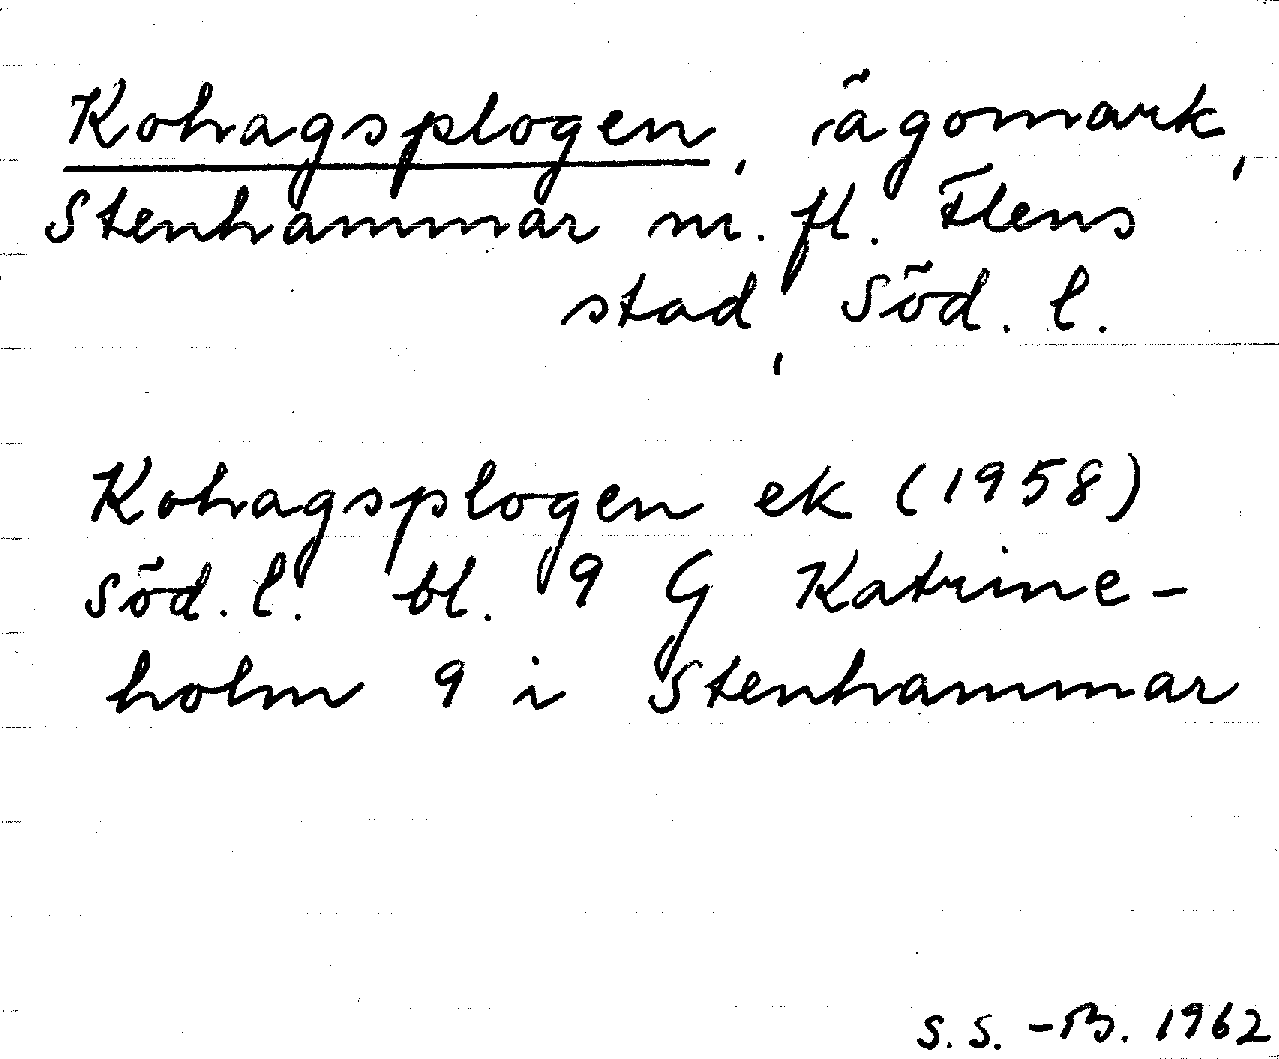 Kohagsplogen, ägomark,
Stenhammar m. fl. Flens
stad, Söd. l.
Kohagsplogen ek (1958)
Söd. l. bl. 9 G Katrine-
holm 9 i Stenhammar
S. S. -B. 1962